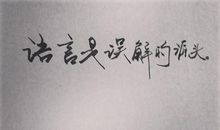 语言是误解的源头。